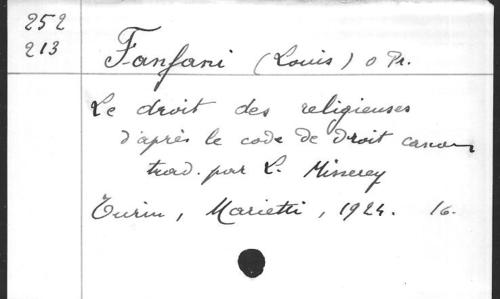 252
213
Fanfani (Louis) o Pr.
Le droit des religieuses
d'après le code de droit canon
trad. par L. Misserey
Turin, Marietti, 1924. 16.